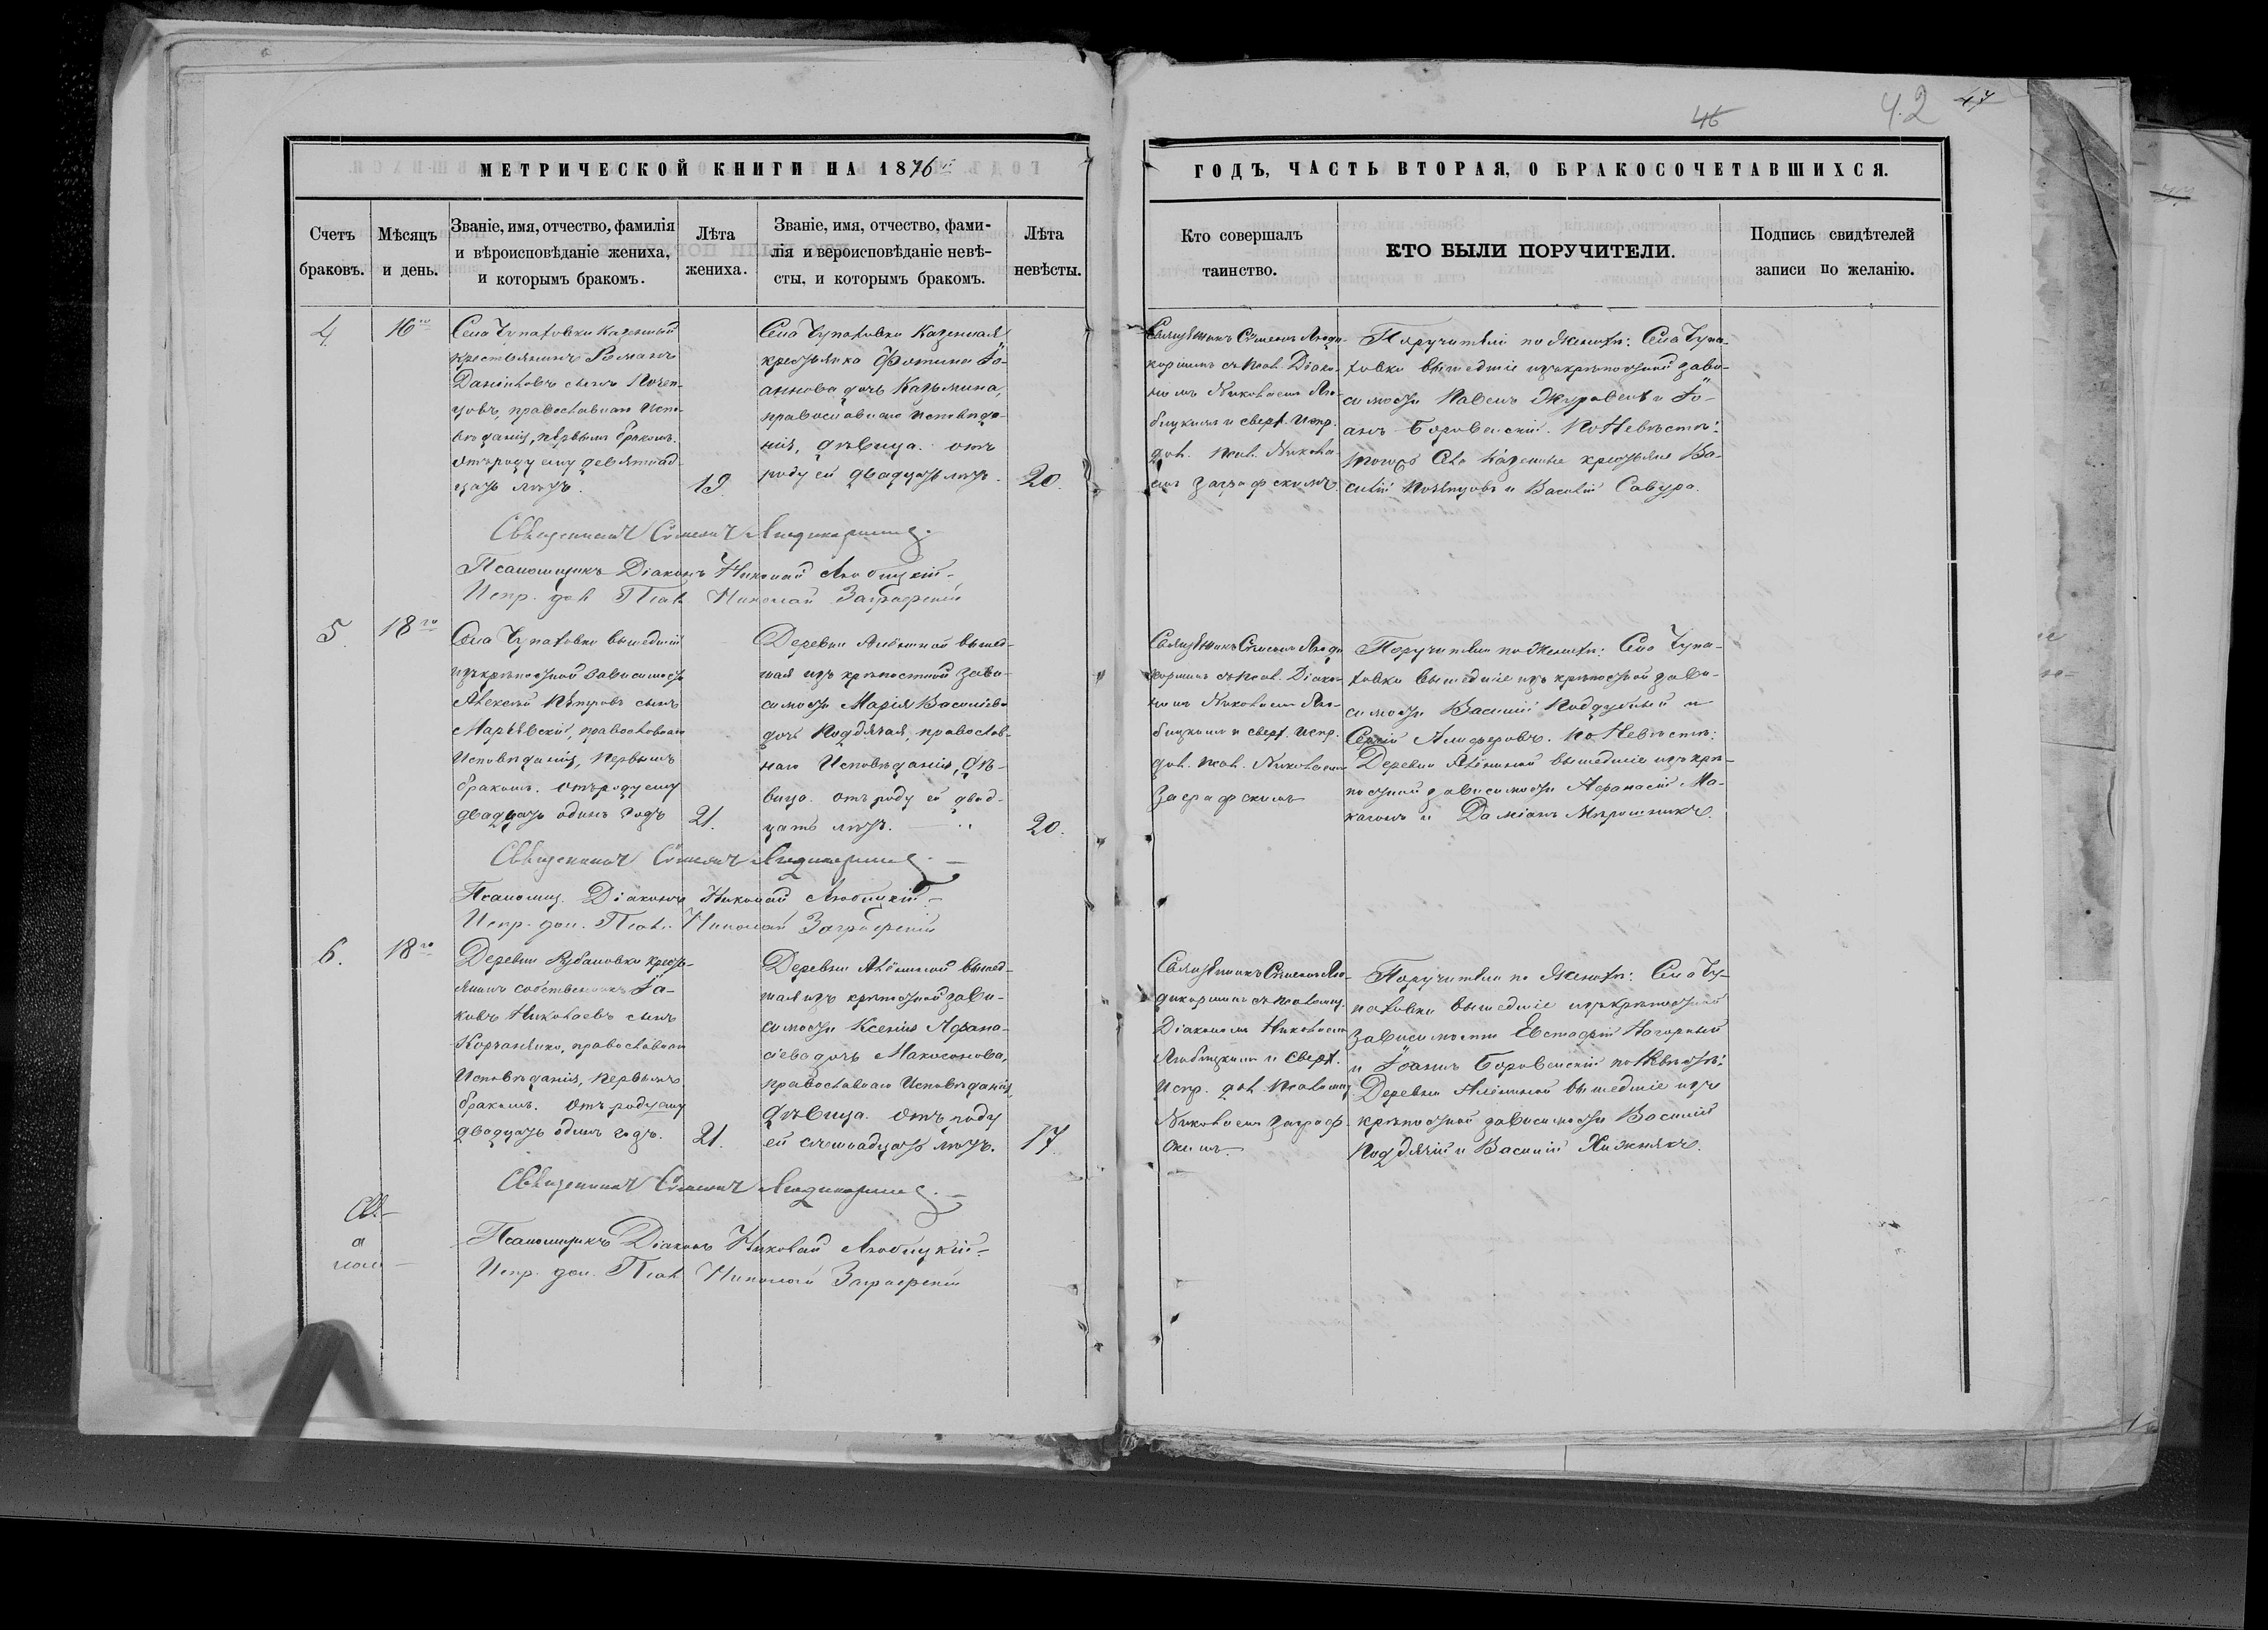 46
42
47
МЕТРИЧЕСКОЙ КНИГИ НА 1876й
ГОДЪ, ЧАСТЬ ВТОРАЯ, О БРАКОСОЧЕТАВШИХСЯ.
Счетъ браковъ.
Мѣсяцъ и день.
Званіе, имя, отчество, фамилія
и вѣроисповѣданіе жениха,
и которымъ бракомъ.
Лѣта жениха.
Званіе, имя, отчество, фами-
лія и вероисповѣданіе невѣ-
сты, и которымъ бракомъ.
Лѣта невѣсты.
Кто совершалъ
таинство.
КТО БЫЛИ ПОРУЧИТЕЛИ.
Подпись свидѣтелей
записи по желанію.
4
16го
Села Чупаховки Казенный
крестьянинъ Романъ
Даніиловъ сынъ
православнаго Испо-
вѣданія, первымъ бракомъ.
отъ роду ему девятнад-
цать лѣтъ.
19.
Села Чупаховки Казенная
крестьянка Фотина Іо-
аннова дочь Казьмина,
православнаго Исповѣда-
нія, дѣвица. отъ
роду ей двадцать лѣтъ.
20.
Священникъ Сѵмеонъ
съ Псал. Діако-
номъ Николаемъ Лю-
бицкимъ и сверх. Испр.
дол. Псал. Никола-
емъ Заграфскимъ.
Поручители по Женихѣ: Села Чупа-
ховки вышедшіе изъ крѣпостной зави-
симости Павелъ Журавель и Іо-
аннъ Боровенскій. По Невѣстѣ:
тогожъ Села Казенные крестьяне Ва-
силій и Василій Савура.
Священникъ Сѵмеонъ
Псаломщикъ Діаконъ Николай Любицкій
Испр. дол. Псал. Николай Заграфскій
5.
18го
Села Чупаховки вышедшій
изъ крѣпостной зависимости
Алексѣй Петровъ сынъ
православнаго
Исповѣданія, первымъ
бракомъ. отъ роду ему
двадцать одинъ годъ
21.
Деревни Алёшиной вышед-
шая изъ крѣпостной зави-
симости Марія Васильева
дочь Поддячая, православ-
наго Исповѣданія, дѣ-
вица. отъ роду ей двад-
цать лѣтъ.
20.
Священникъ Сѵмеонъ
съ Псал. Діако-
номъ Николаемъ Лю-
бицкимъ и сверх. Испр.
дол. Псал. Николаемъ
Заграфскимъ
Поручители по Женихѣ: Села Чупа-
ховки вышедшіе изъ крѣпостной зави-
симости Василій Поддубный и
Сергій Алиферовъ. По Невѣстѣ:
Деревни Алёшиной вышедшіе изъ крѣ-
постной зависимости Афанасій Ма-
и Даміанъ Мѣрошникъ.
Священникъ Сѵмеонъ
Псаломщ. Діаконъ Николай Любицкій
Испр. дол. Псал. Николай Заграфскій
6.
18го
Деревни Рубановки кресть-
янинъ собственникъ Іа-
ковъ Николаевъ сынъ
православнаго
Исповѣданія, первымъ
бракомъ. Отъ роду ему
двадцать одинъ годъ.
21.
Деревни Алёшиной вышед-
шая изъ крѣпостной зави-
симости Ксенія Афана-
сіева дочь
православнаго Исповѣданія,
дѣвица. Отъ роду
ей семнадцать лѣтъ.
17
Священникъ Сѵмеонъ
съ Псаломщ.
Діакономъ Николаемъ
Любицкимъ и сверх.
Испр. дол. Псаломщ.
Николаемъ Заграф-
скимъ.
Поручители по Женихѣ: Села Чу-
паховки вышедшіе изъ крѣпостной
зависимости Евстафій Нагорный
и Іоаннъ Боровенскій по Невѣстѣ:
Деревни Алёшиной вышедшіе изъ
крѣпостной зависимости Василій
Поддячій и Василій Хижнякъ.
Священникъ Сѵмеонъ
Псаломщикъ Діаконъ Николай Любицкій
Испр. дол. Псал. Николай Заграфскій